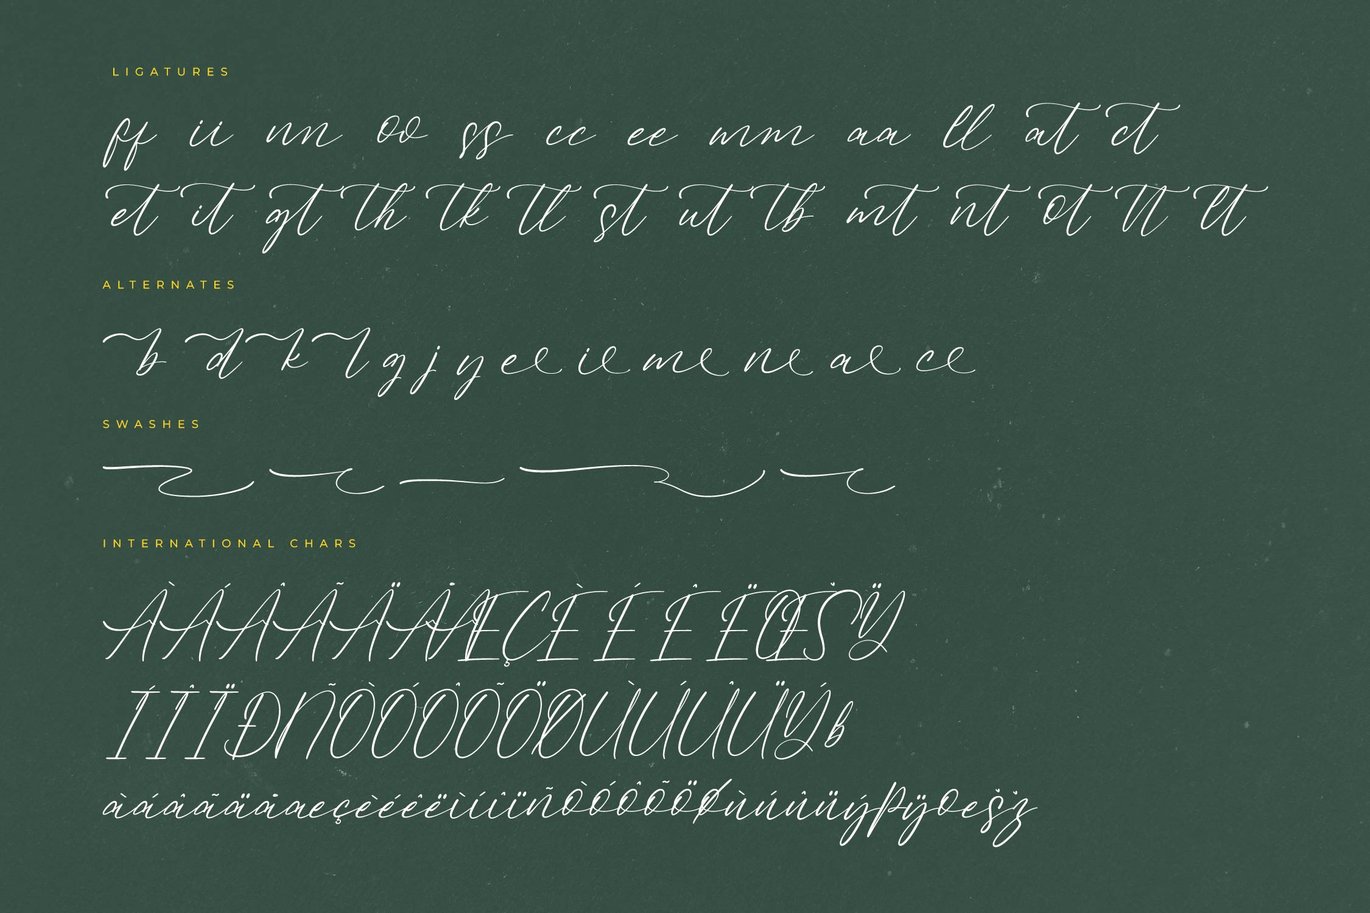 LIGATURES
ff ii nn oo ss cc ee mm aa ll at ct
et it gt th tk tl st ut tb mt nt ot tt lt
ALTERNATES
b d k l g j y ee ie me ne ae ce
SWASHES
INTERNATIONAL CHARS
ÀÁÂÃÄÅÆÇÈÉÊËŒŠŸ
ÍÎÏÐÑÒÓÔÕÖØÙÚÛÜÝß
àáâãäåæçèéêëìíîïñòóôõöøùúûüýþÿœšž